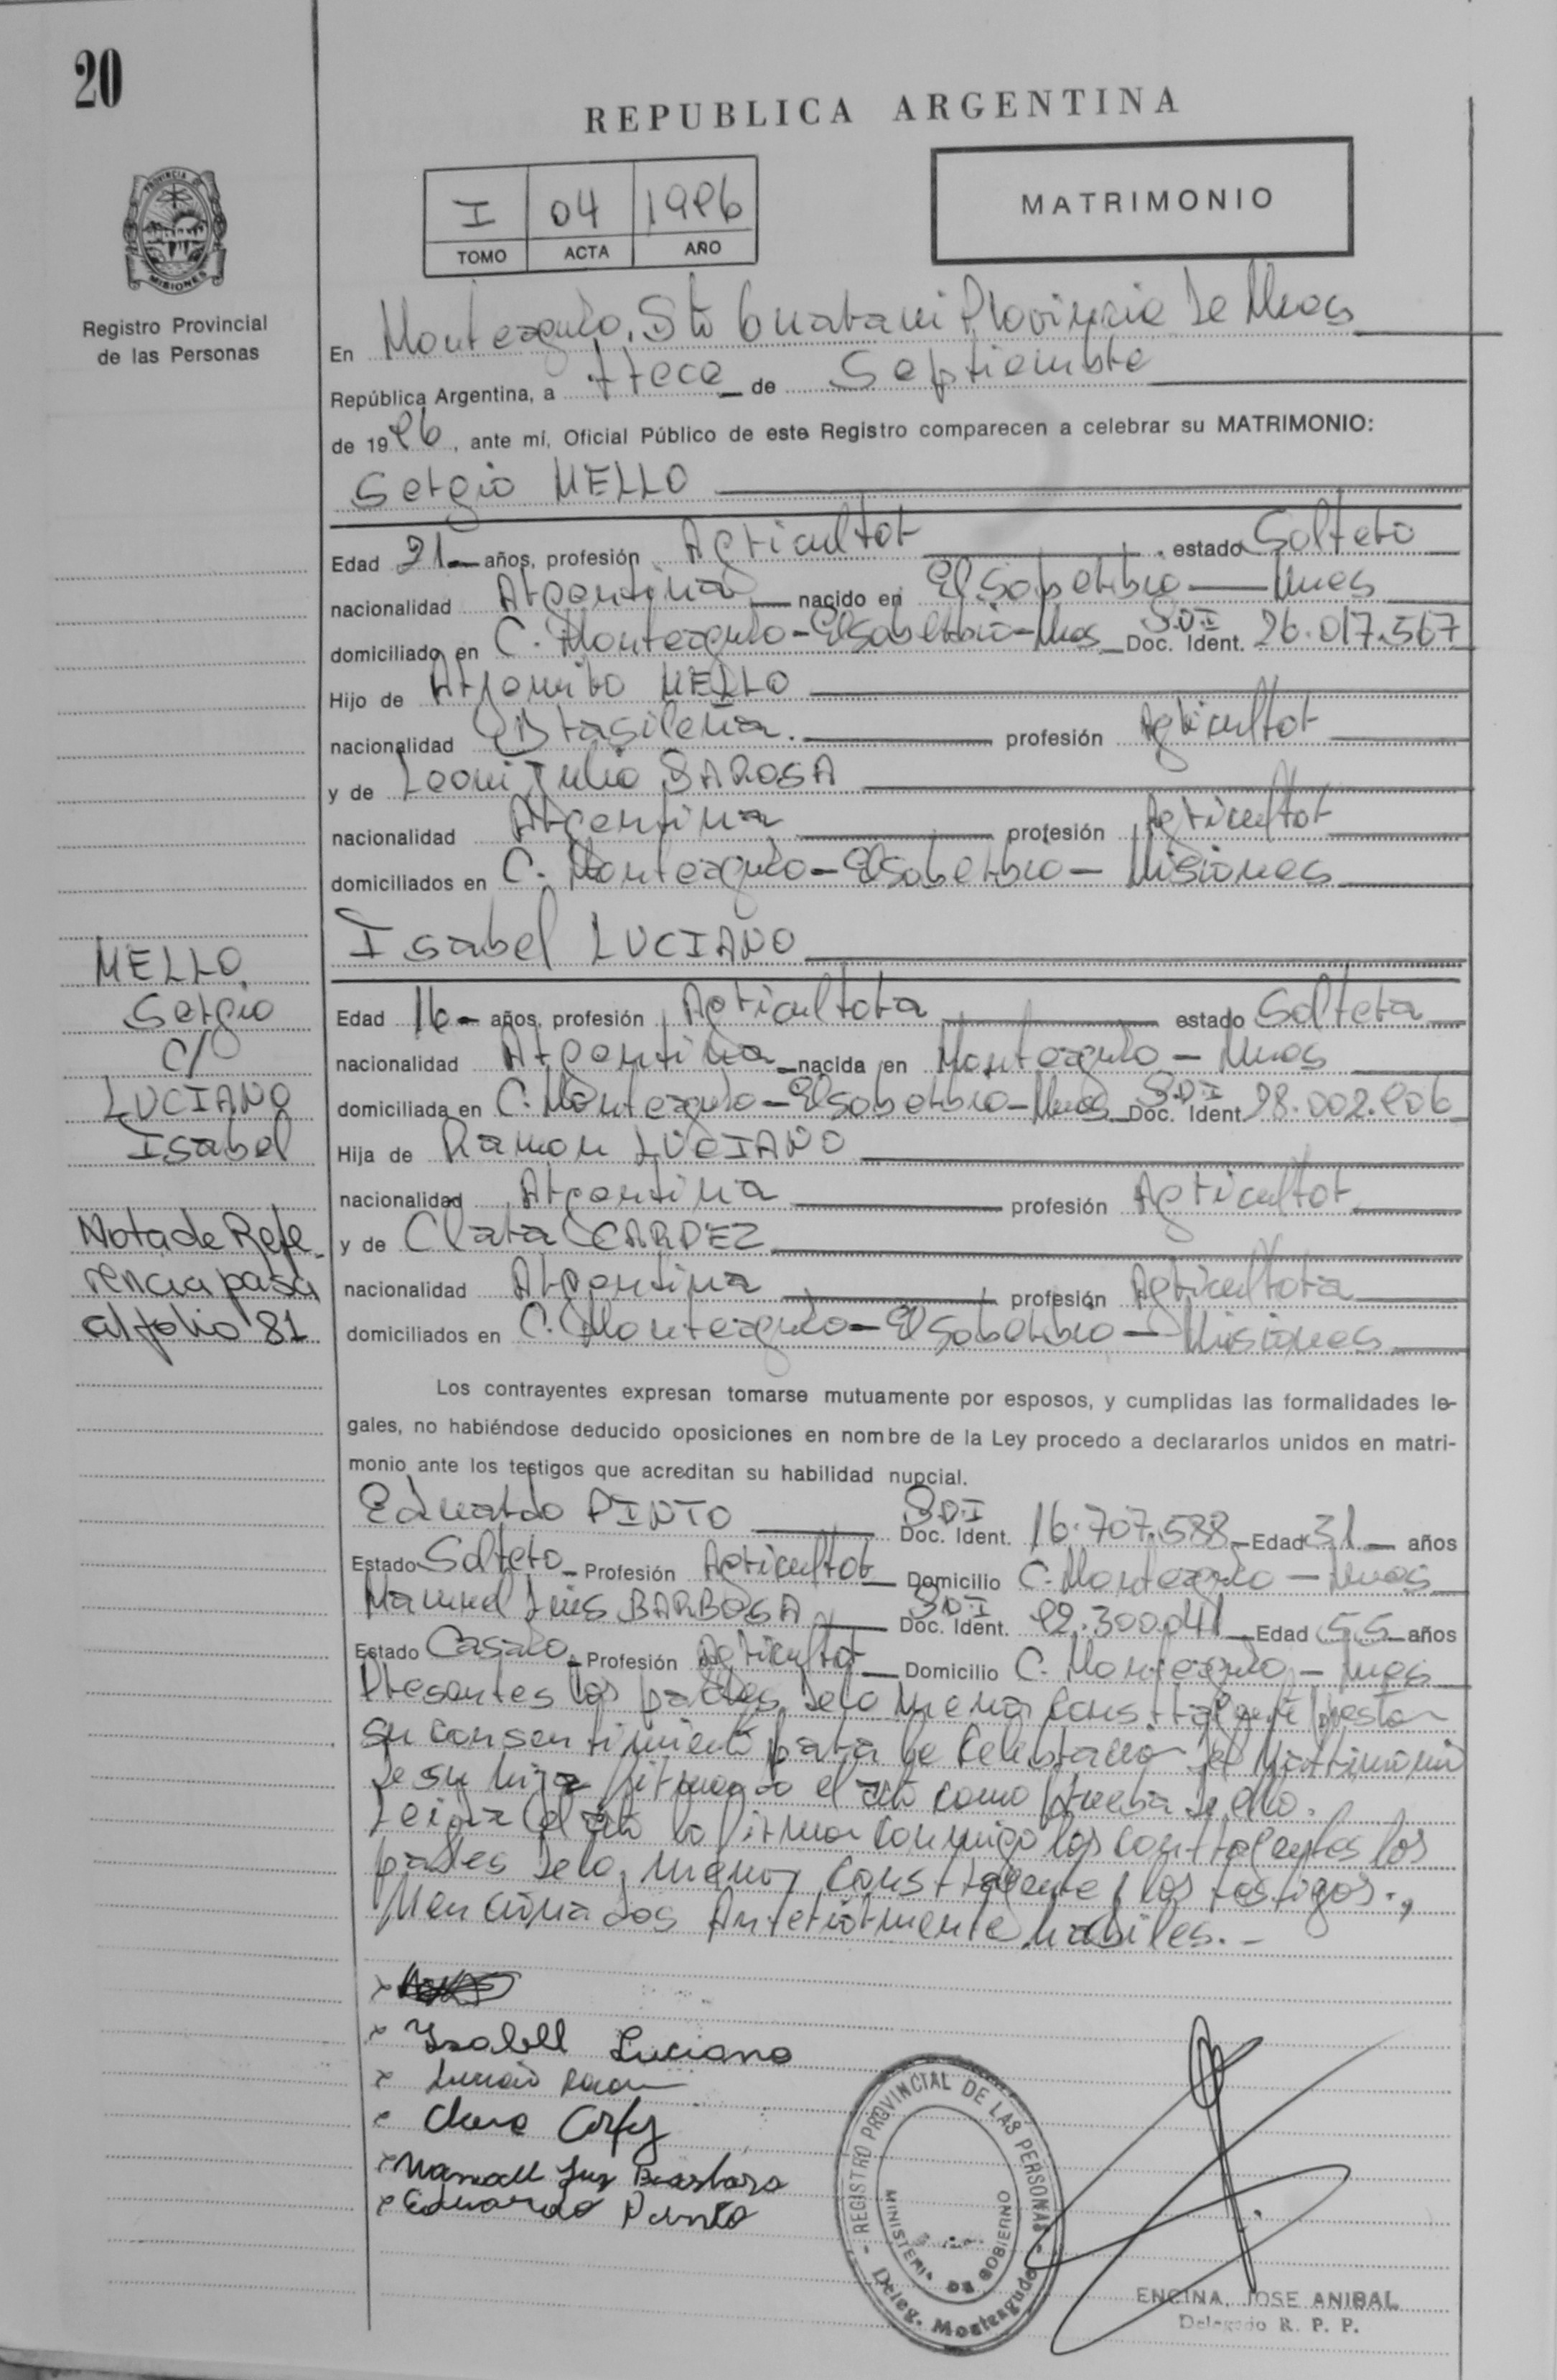 20
REPUBLICA ARGENTINA
PROVINCIA DE
MISIONES
Registro Provincial
de las Personas
I 04 1986
TOMO ACTA AÑO
MATRIMONIO
En Monteagudo, Sto Guatani Provincia de Mnes
República Argentina, a trece de Septiembre
de 1986, ante mí, Oficial Público de este Registro comparecen a celebrar su MATRIMONIO:
Sergio MELLO
Edad 21 años, profesión Agricultor estado Soltero
nacionalidad Argentina nacido en El Soberbio Mnes
domiciliado en C. Monteagudo - El Soberbio - Mnes Doc. Ident. 26.017.567
Hijo de MELLO
nacionalidad Brasileña. profesión Agricultor
y de Leoni Julio BAROSA
nacionalidad Argentina profesión Agricultor
domiciliados en C. Monteagudo - El Soberbio - Misiones
Isabel LUCIANO
Edad 16 años, profesión Agricultora estado Soltera
nacionalidad Argentina nacida en Monteagudo - Mnes
domiciliada en C. Monteagudo - El Soberbio - Mnes Doc. Ident. 28.002.806
Hija de Ramon LUCIANO
nacionalidad Argentina profesión Agricultor
y de Clara CARDEZ
nacionalidad Argentina profesión Agricultora
domiciliados en C. Monteagudo - El Soberbio - Misiones
MELLO
Sergio
C/
LUCIANO
Isabel
Nota de Refe-
rencia pasa
al folio 81
Los contrayentes expresan tomarse mutuamente por esposos, y cumplidas las formalidades le-
gales, no habiéndose deducido oposiciones en nombre de la Ley procedo a declararlos unidos en matri-
monio ante los testigos que acreditan su habilidad nupcial.
Eduardo PINTO Doc. Ident. 16.707.588 Edad 31 años
Estado Soltero Profesión Agricultor Domicilio C. Monteagudo - Mnes
Manuel Luis BARBOSA Doc. Ident. 92.300.041 Edad 55 años
Estado Casado Profesión Agricultor Domicilio C. Monteagudo - Mnes
Presentes los padres de la menor constrayente prestan
su consentimiento para la celebracion del Matrimonio
de su hija firmando el acto como prueba de ello.
Leida el acta la firman conmigo los contrayentes los
padres de la menor constrayente y los testigos.,
Mencionados Anteriormente habiles. -
Isabell Luciano
Manuell Luz Barboza
Eduardo Pinto
REGISTRO PROVINCIAL DE LAS PERSONAS
MINISTERIO DE GOBIERNO
Deleg. Monteagudo
ENCINA, JOSE ANIBAL
Delegado R. P. P.